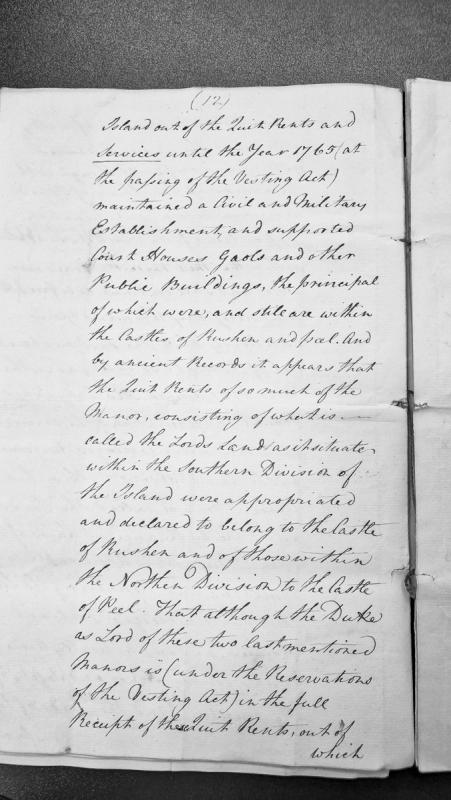 (12)
Island out of the Quit Rents and
Services until the Year 1765 (at
the passing of the Vesting Act)
maintained a Civil and Military
Establishment, and supported
Court Houses Gaols and other
Public Buildings, the principal
of which were, and still are within
the Castles, of Rushen and peel. And
by ancient Records it appears that
the Quit Rents of so much of the
Manor, consisting of what is —
called the Lords Land as is situate
within the Southern Division of
the Island were appropriated
and declared to belong to the Castle
of Rushen and of those within
the Northen Division to the Castle
of Peel. That although the Duke
as Lord of these two last mentioned
Manors is (under the Reservations
of the Vesting Act) in the full
Receipt of these Quit Rents, out of
which